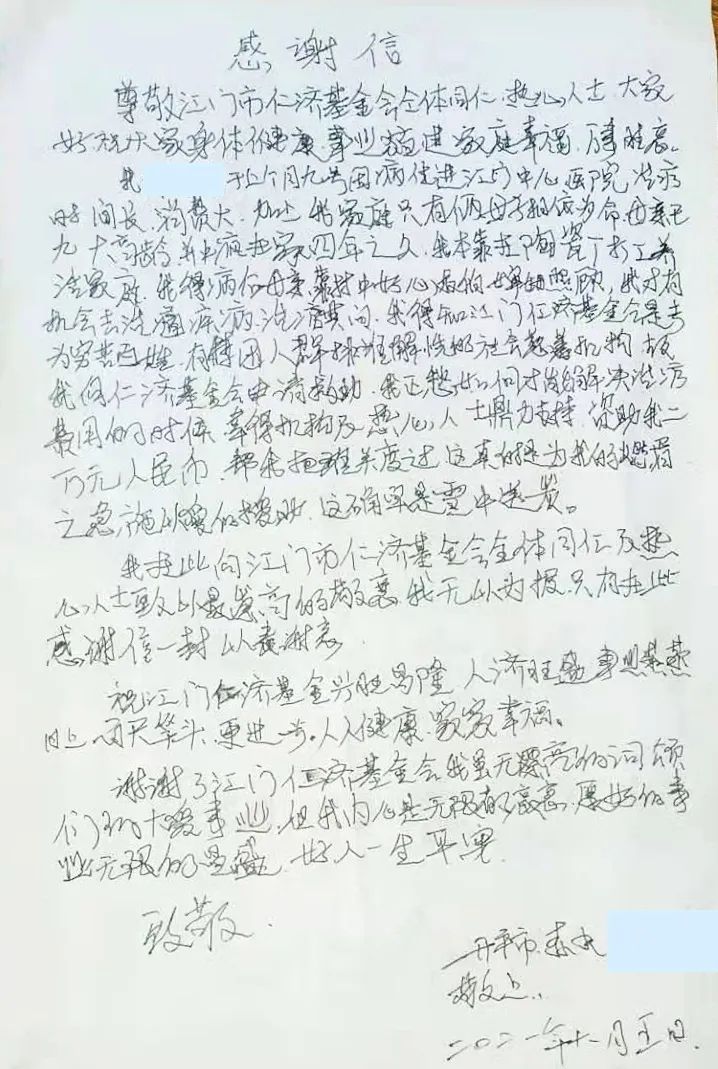 感谢信
尊敬江门市仁济基金会全体同仁、热心人士、大家
好祝大家身体健康、事业猛进家庭幸福、万事胜意。
我 于上个月九号因病住进江门中心医院治病
时间长、消费大、加上我家庭只有俩母子相依为命、母亲已
九十高龄并中疯在家四年之久、我本靠在陶瓷厂打工养
活家庭、我得病后母亲靠村中好心 照顾、我才有
机会去治 病、治病其间、我得知江门仁济基金会是专
为穷苦百姓、有特困人群排难解忧的社会慈善机构、故
我向仁济基金会申请救助、我正愁如何才能解决治病
费用的时候、幸得机构及热心人士鼎力支持、资助我二
万元人民币、帮我把难关度过、这真的是为我的燃眉
之急施以 的援助、这确实是雪中送炭。
我在此向江门市仁济基金会全体同仁及热
心人士致以最崇高的敬意、我无以为报只有在此
感谢信一封以表谢意、
祝江门仁济基金兴旺昌隆、人济旺盛事业蒸蒸
日上、百尺竿头、更进一步。人人健康、家家幸福。
谢谢了江门仁济基金会我虽无漂亮的词颂
们的大爱事业、但我内心是无限的 、愿好的事
业无限的 盛、好人一生平安。
致敬、
开平市、赤水
敬上..
二0二一年十一月五日.